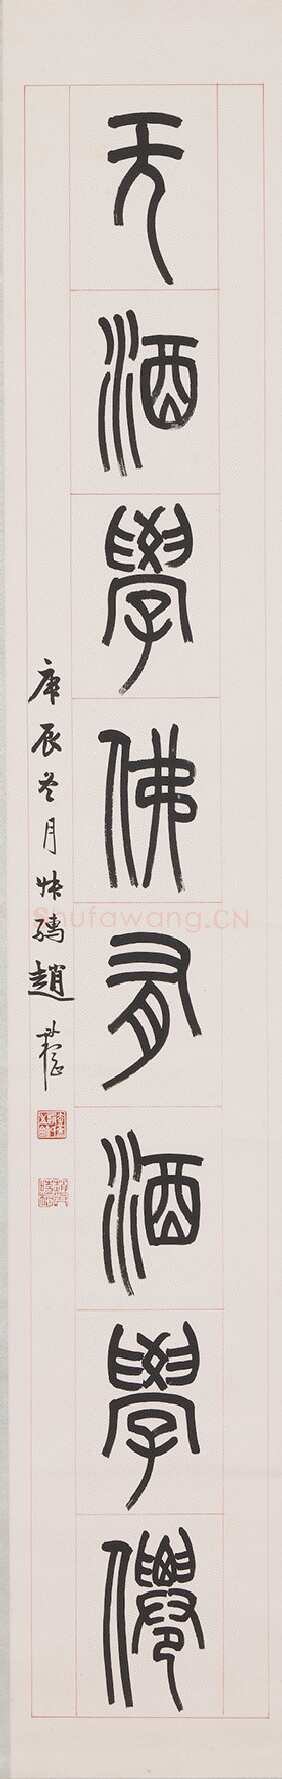 无酒學佛有酒學僊
庚辰冬月叔孺趙
Shufawang.CN